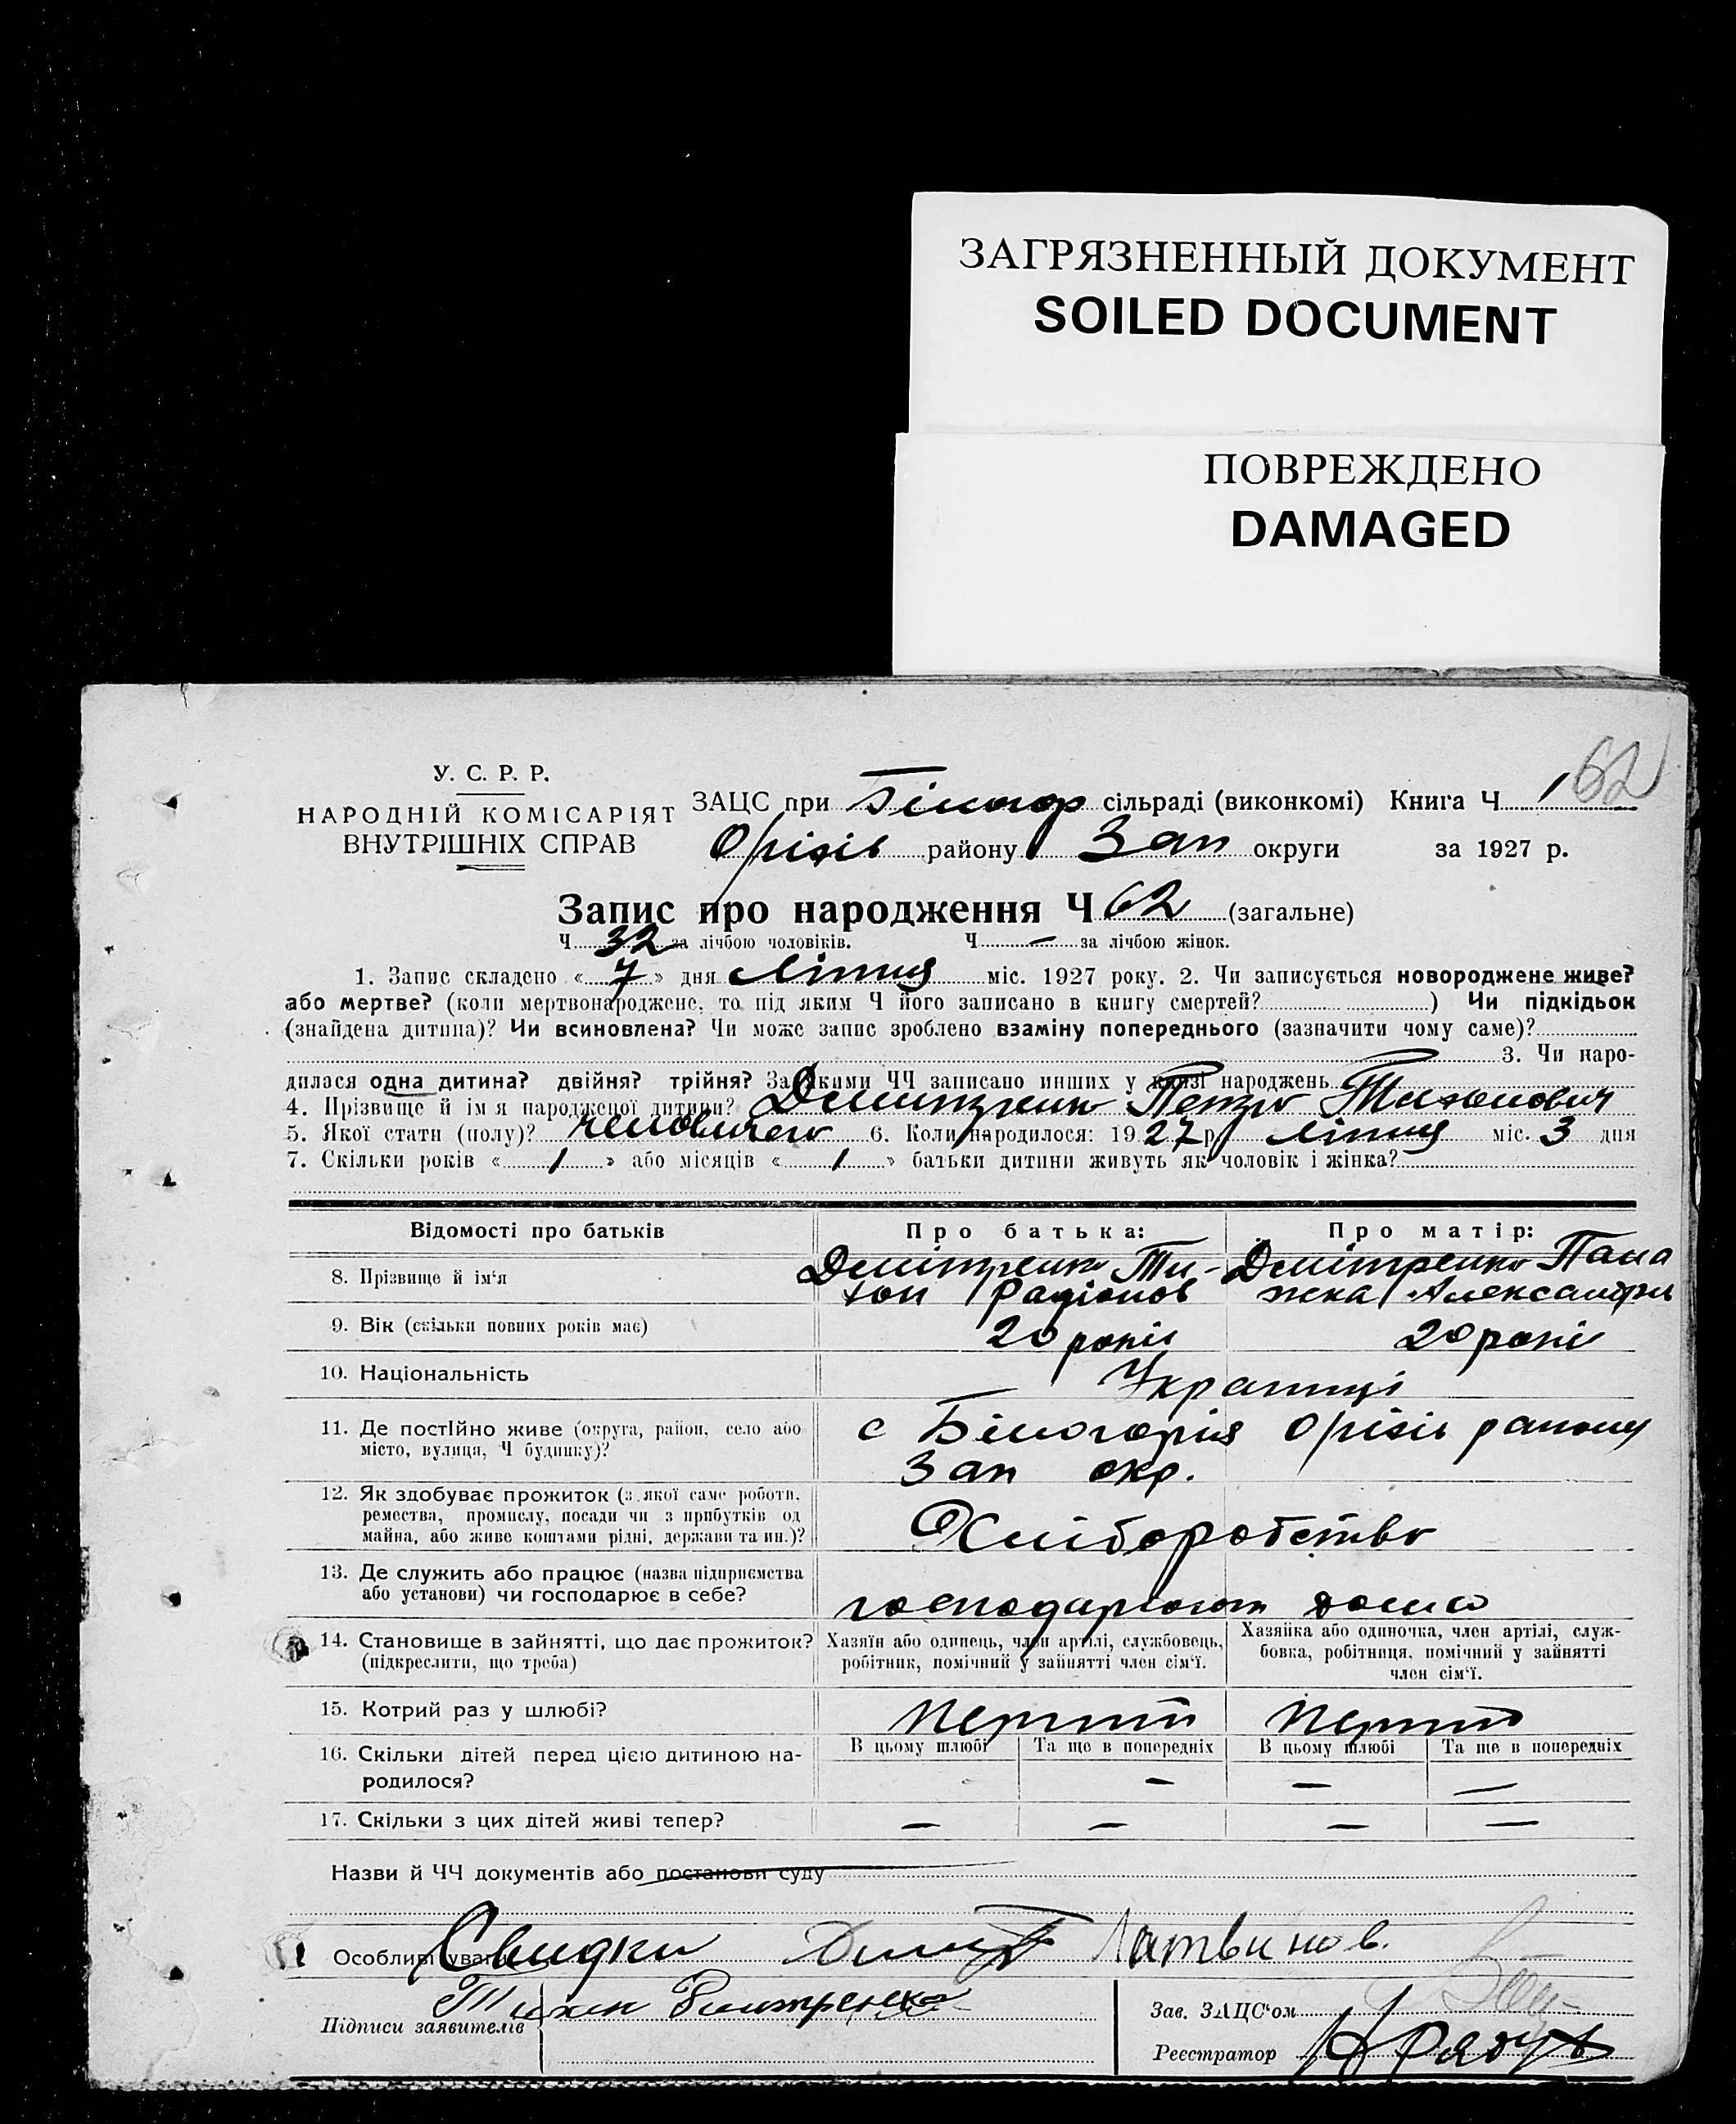 ЗАГРЯЗНЕННЫЙ ДОКУМЕНТ
SOILED DOCUMENT
ПОВРЕЖДЕНО
DAMAGED
62
У. С. Р. Р.
НАРОДНІЙ КОМІСАРІЯТ
ВНУТРІШНІХ СПРАВ
ЗАЦС при Білогор сільраді (виконкомі) Книга Ч 1
Оріхів району Зап округи за 1927 р.
Запис про народження Ч 62 (загальне)
Ч 32 за лічбою чоловіків. Ч — за лічбою жінок.
1. Запис складено « 7 » дня Ліпця міс. 1927 року. 2. Чи записується новороджене живе?
або мертве? (коли мертвонароджене, то під яким Ч його записано в книгу смертей? ) Чи підкідьок
(знайдена дитина)? Чи всиновлена? Чи може запис зроблено взаміну попереднього (зазначити чому саме)?
3. Чи наро-
дилася одна дитина? двійня? трійня? За якими ЧЧ записано инших у книзі народжень
4. Прізвище й ім'я народженої дитини? Дмитренко Петро Тихонович
5. Якої стати (полу)? чоловичего 6. Коли народилося: 1927 р. ліпця міс. 3 дня
7. Скільки років « 1 » або місяців « 1 » батьки дитини живуть як чоловік і жінка?
Відомості про батьків Про батька: Про матір:
8. Прізвище й ім'я Дмітренко Ти- Дмітренко Пана
хон Радіонов жка Александрів
9. Вік (скільки повних років має) 20 років 20 років
10. Національність Українці
11. Де постійно живе (округа, район, село або с Білогорія Оріхів району
місто, вулиця, Ч будинку)? Зап окр.
12. Як здобуває прожиток (з якої саме роботи,
ремества, промислу, посади чи з прибутків од Хліборобство
майна, або живе коштами рідні, держави та ин.)?
13. Де служить або працює (назва підприємства
або установи) чи господарює в себе? господарюють дома
14. Становище в зайнятті, що дає прожиток? Хазяїн або одинець, член артілі, службовець, Хазяйка або одиночка, член артілі, служ-
(підкреслити, що треба) робітник, помічний у зайнятті член сім'ї. бовка, робітниця, помічний у зайнятті
член сім'ї.
15. Котрий раз у шлюбі? Перший Перший
16. Скільки дітей перед цією дитиною на- В цьому шлюбі Та ще в попередніх В цьому шлюбі Та ще в попередніх
родилося? — — —
17. Скільки з цих дітей живі тепер? — — — —
Назви й ЧЧ документів або постанови суду
Особливі уваги Свидки Латвинов.
Тихон Дмитренко Зав. ЗАЦС'ом
Підписи заявителів
Реєстратор